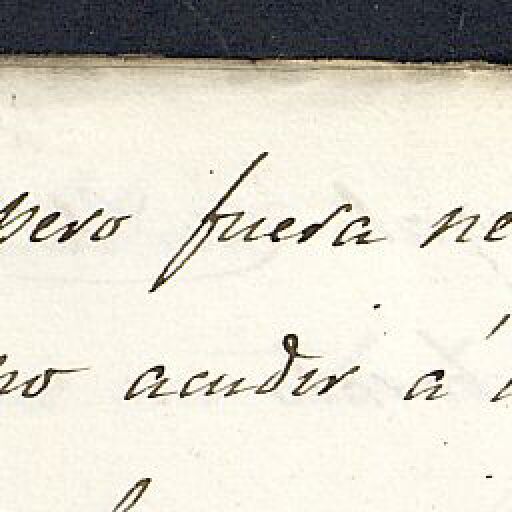 pero fuera ne
no acudir á